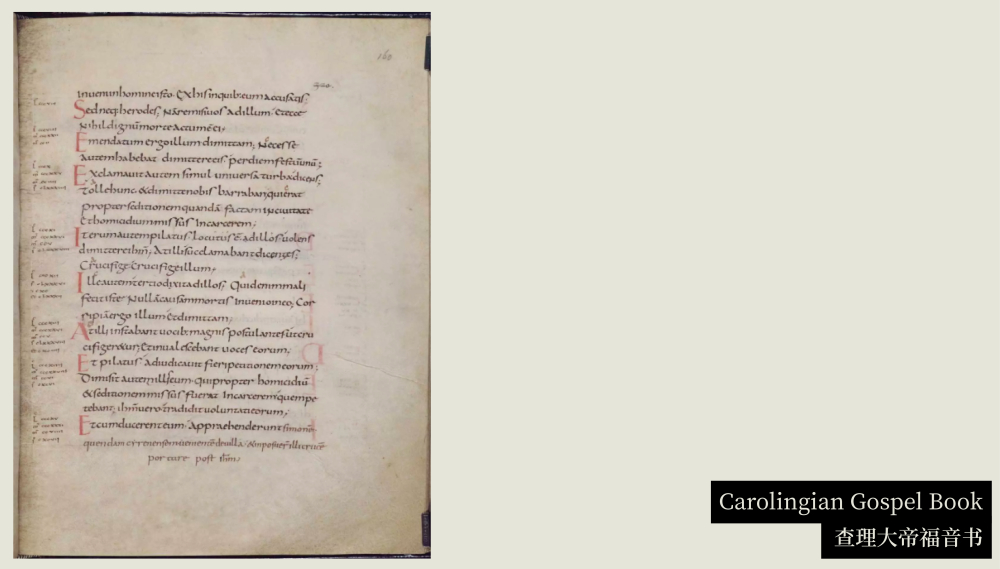 160
inueni inhomine isto exhis inquibus eum accusatis;
Sed neq; herodes; Nam remisi uos adillum et ecce
Nihil dignum morte actum ē ei;
Emendatum ergo illum dimittam; Necesse
autem habebat dimittere eis perdiem festum unum;
Exclamauit autem simul uniuersa turba dicens;
Tolle hunc & dimitte nobis barraban; qui erat
propter seditionem quandā factam in ciuitate
et homicidium missus In carcerem;
Iterum autem pilatus locutus ē adillos uolens
dimittere ihm; At illi succlamabant dicentes;
Crucifige Crucifige illum;
Ille autem tertio dixit adillos; Quid enim mali
fecit iste Nullā causam mortis Inuenio in eo; Cor
ripiā ergo illum et dimittam;
At illi instabant uocib; magnis postulantes ut cru
cifigeretur; Et inualescebant uoces eorum;
Et pilatus adiudicauit fieri petitionem eorum;
Dimisit autem illis eum qui propter homicidiū
& seditionem missus fuerat In carcerem quem pe
tebant; ihm uero tradidit uoluntati eorum;
Et cum ducerent eum Apprehenderunt simonē
quendam cyrenensem uenientē deuilla & imposuer illi crucē
portare post ihm;
Carolingian Gospel Book
查理大帝福音书